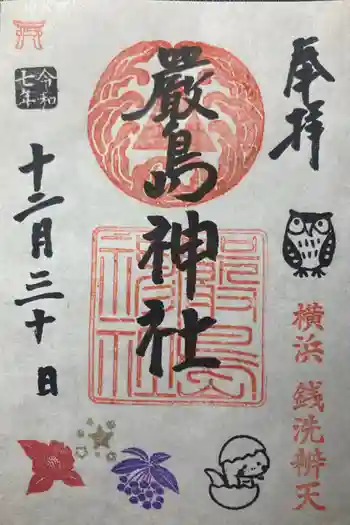 奉拝
横浜 銭洗辨天
厳島神社
令和
七年
十二月三十日